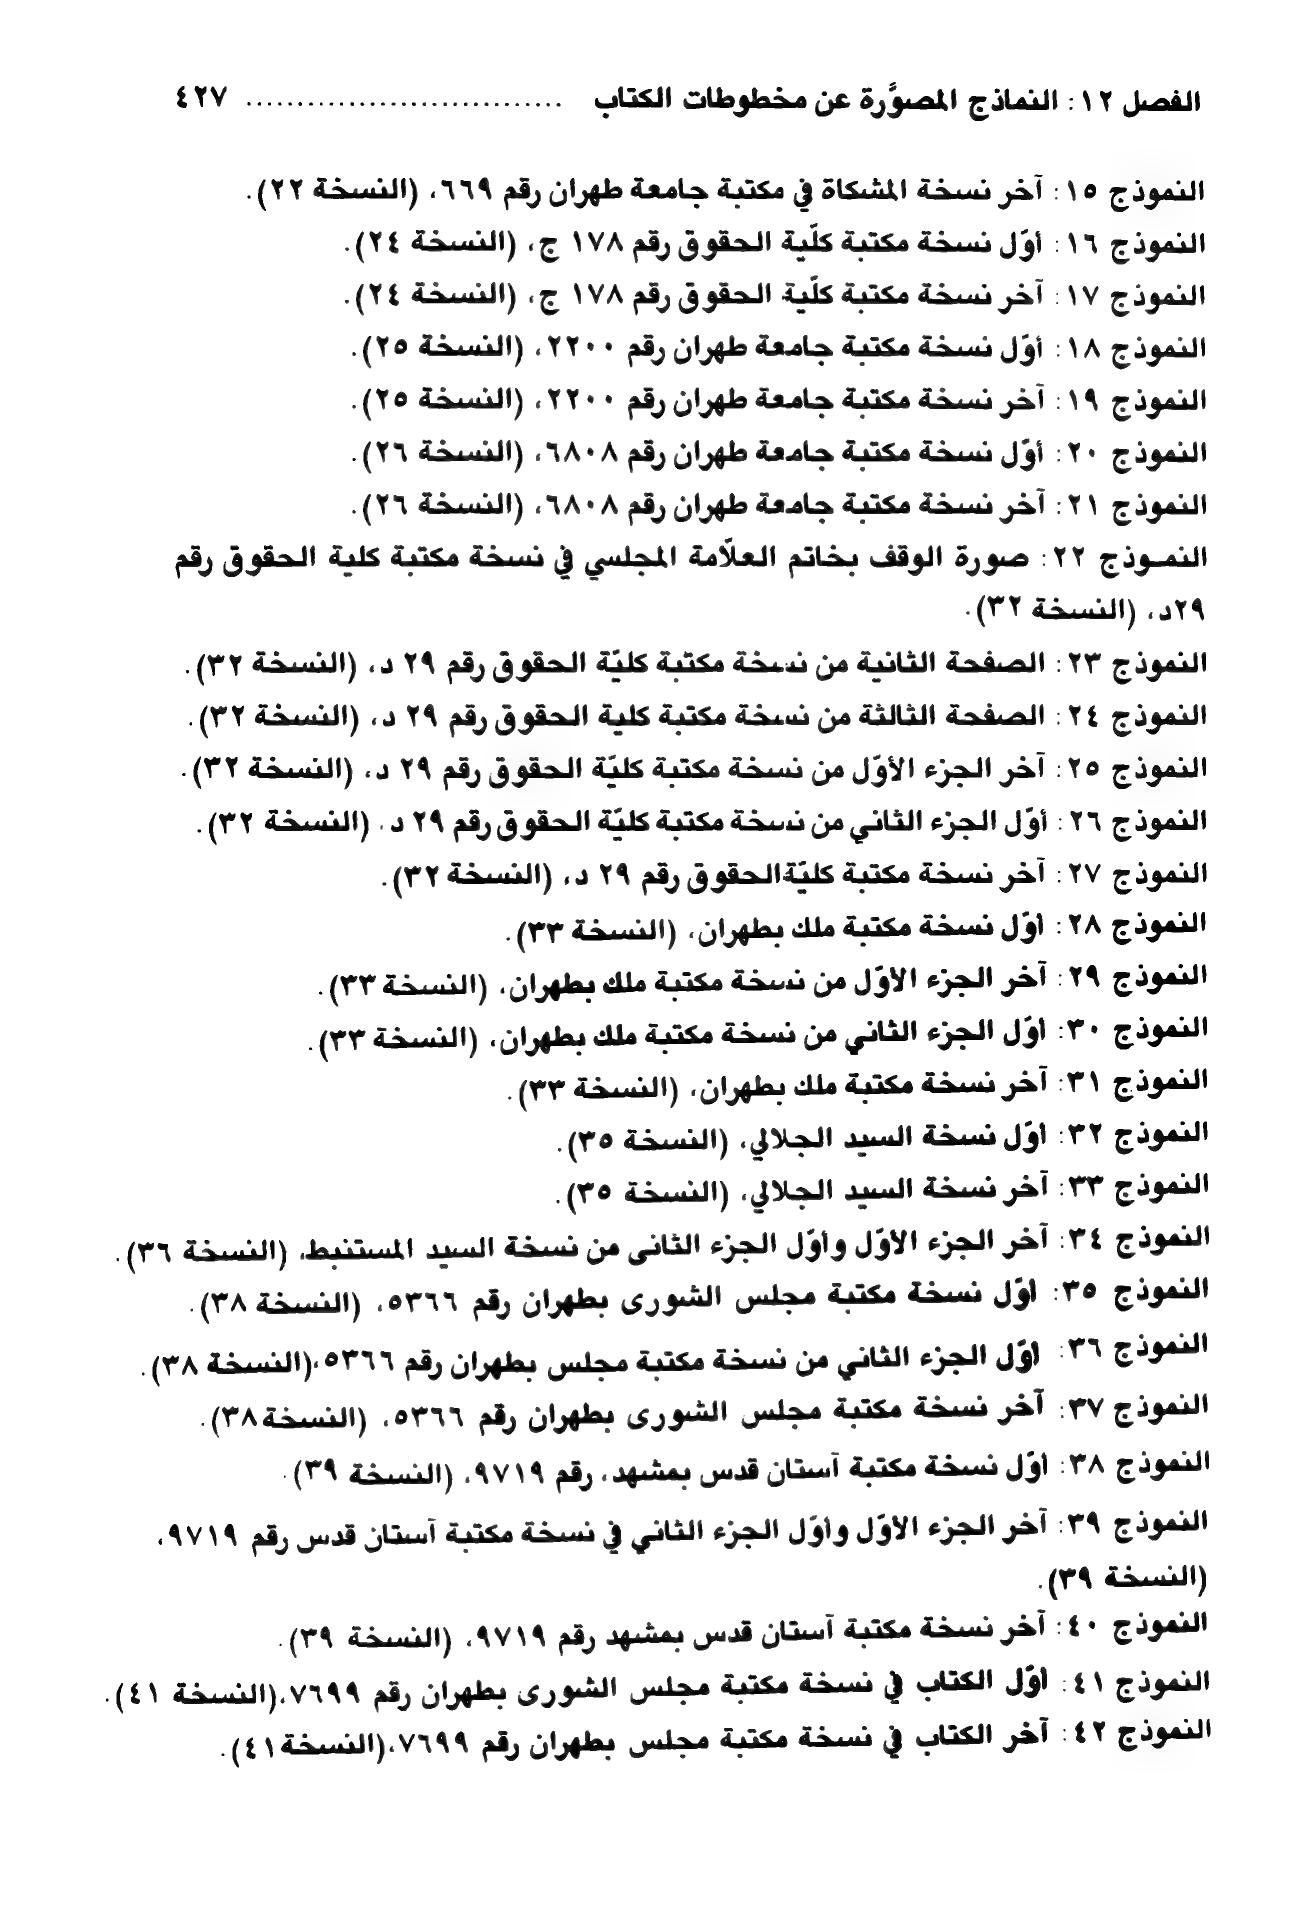 الفصل ١٢: النماذج المصوَّرة عن مخطوطات الكتاب ................................ ٤٢٧
النموذج ١٥: آخر نسخة المشكاة في مكتبة جامعة طهران رقم ٦٦٩، (النسخة ٢٢).
النموذج ١٦: أوّل نسخة مكتبة كلّية الحقوق رقم ١٧٨ ج، (النسخة ٢٤).
النموذج ١٧: آخر نسخة مكتبة كلّية الحقوق رقم ١٧٨ ج، (النسخة ٢٤).
النموذج ١٨: أوّل نسخة مكتبة جامعة طهران رقم ٢٢٠٠، (النسخة ٢٥).
النموذج ١٩: آخر نسخة مكتبة جامعة طهران رقم ٢٢٠٠، (النسخة ٢٥).
النموذج ٢٠: أوّل نسخة مكتبة جامعة طهران رقم ٦٨٠٨، (النسخة ٢٦).
النموذج ٢١: آخر نسخة مكتبة جامعة طهران رقم ٦٨٠٨، (النسخة ٢٦).
النمـوذج ٢٢: صورة الوقف بخاتم العلاّمة المجلسي في نسخة مكتبة كلية الحقوق رقم
٢٩د، (النسخة ٣٢).
النموذج ٢٣: الصفحة الثانية من نسخة مكتبة كليّة الحقوق رقم ٢٩ د، (النسخة ٣٢).
النموذج ٢٤: الصفحة الثالثة من نسخة مكتبة كلية الحقوق رقم ٢٩ د، (النسخة ٣٢).
النموذج ٢٥: آخر الجزء الأوّل من نسخة مكتبة كليّة الحقوق رقم ٢٩ د، (النسخة ٣٢).
النموذج ٢٦: أوّل الجزء الثاني من نسخة مكتبة كليّة الحقوق رقم ٢٩ د، (النسخة ٣٢).
النموذج ٢٧: آخر نسخة مكتبة كليّة الحقوق رقم ٢٩ د، (النسخة ٣٢).
النموذج ٢٨: أوّل نسخة مكتبة ملك بطهران، (النسخة ٣٣).
النموذج ٢٩: آخر الجزء الأوّل من نسخة مكتبة ملك بطهران، (النسخة ٣٣).
النموذج ٣٠: أوّل الجزء الثاني من نسخة مكتبة ملك بطهران، (النسخة ٣٣).
النموذج ٣١: آخر نسخة مكتبة ملك بطهران، (النسخة ٣٣).
النموذج ٣٢: أوّل نسخة السيد الجلالي، (النسخة ٣٥).
النموذج ٣٣: آخر نسخة السيد الجلالي، (النسخة ٣٥).
النموذج ٣٤: آخر الجزء الأوّل وأوّل الجزء الثانى من نسخة السيد المستنبط، (النسخة ٣٦).
النموذج ٣٥: أوّل نسخة مكتبة مجلس الشورى بطهران رقم ٥٣٦٦، (النسخة ٣٨).
النموذج ٣٦: أوّل الجزء الثاني من نسخة مكتبة مجلس بطهران رقم ٥٣٦٦،(النسخة ٣٨).
النموذج ٣٧: آخر نسخة مكتبة مجلس الشورى بطهران رقم ٥٣٦٦، (النسخة ٣٨).
النموذج ٣٨: أوّل نسخة مكتبة آستان قدس بمشهد، رقم ٩٧١٩، (النسخة ٣٩).
النموذج ٣٩: آخر الجزء الأوّل وأوّل الجزء الثاني في نسخة مكتبة آستان قدس رقم ٩٧١٩،
(النسخة ٣٩).
النموذج ٤٠: آخر نسخة مكتبة آستان قدس بمشهد رقم ٩٧١٩، (النسخة ٣٩).
النموذج ٤١: أوّل الكتاب في نسخة مكتبة مجلس الشورى بطهران رقم ٧٦٩٩،(النسخة ٤١).
النموذج ٤٢: آخر الكتاب في نسخة مكتبة مجلس بطهران رقم ٧٦٩٩،(النسخة ٤١).